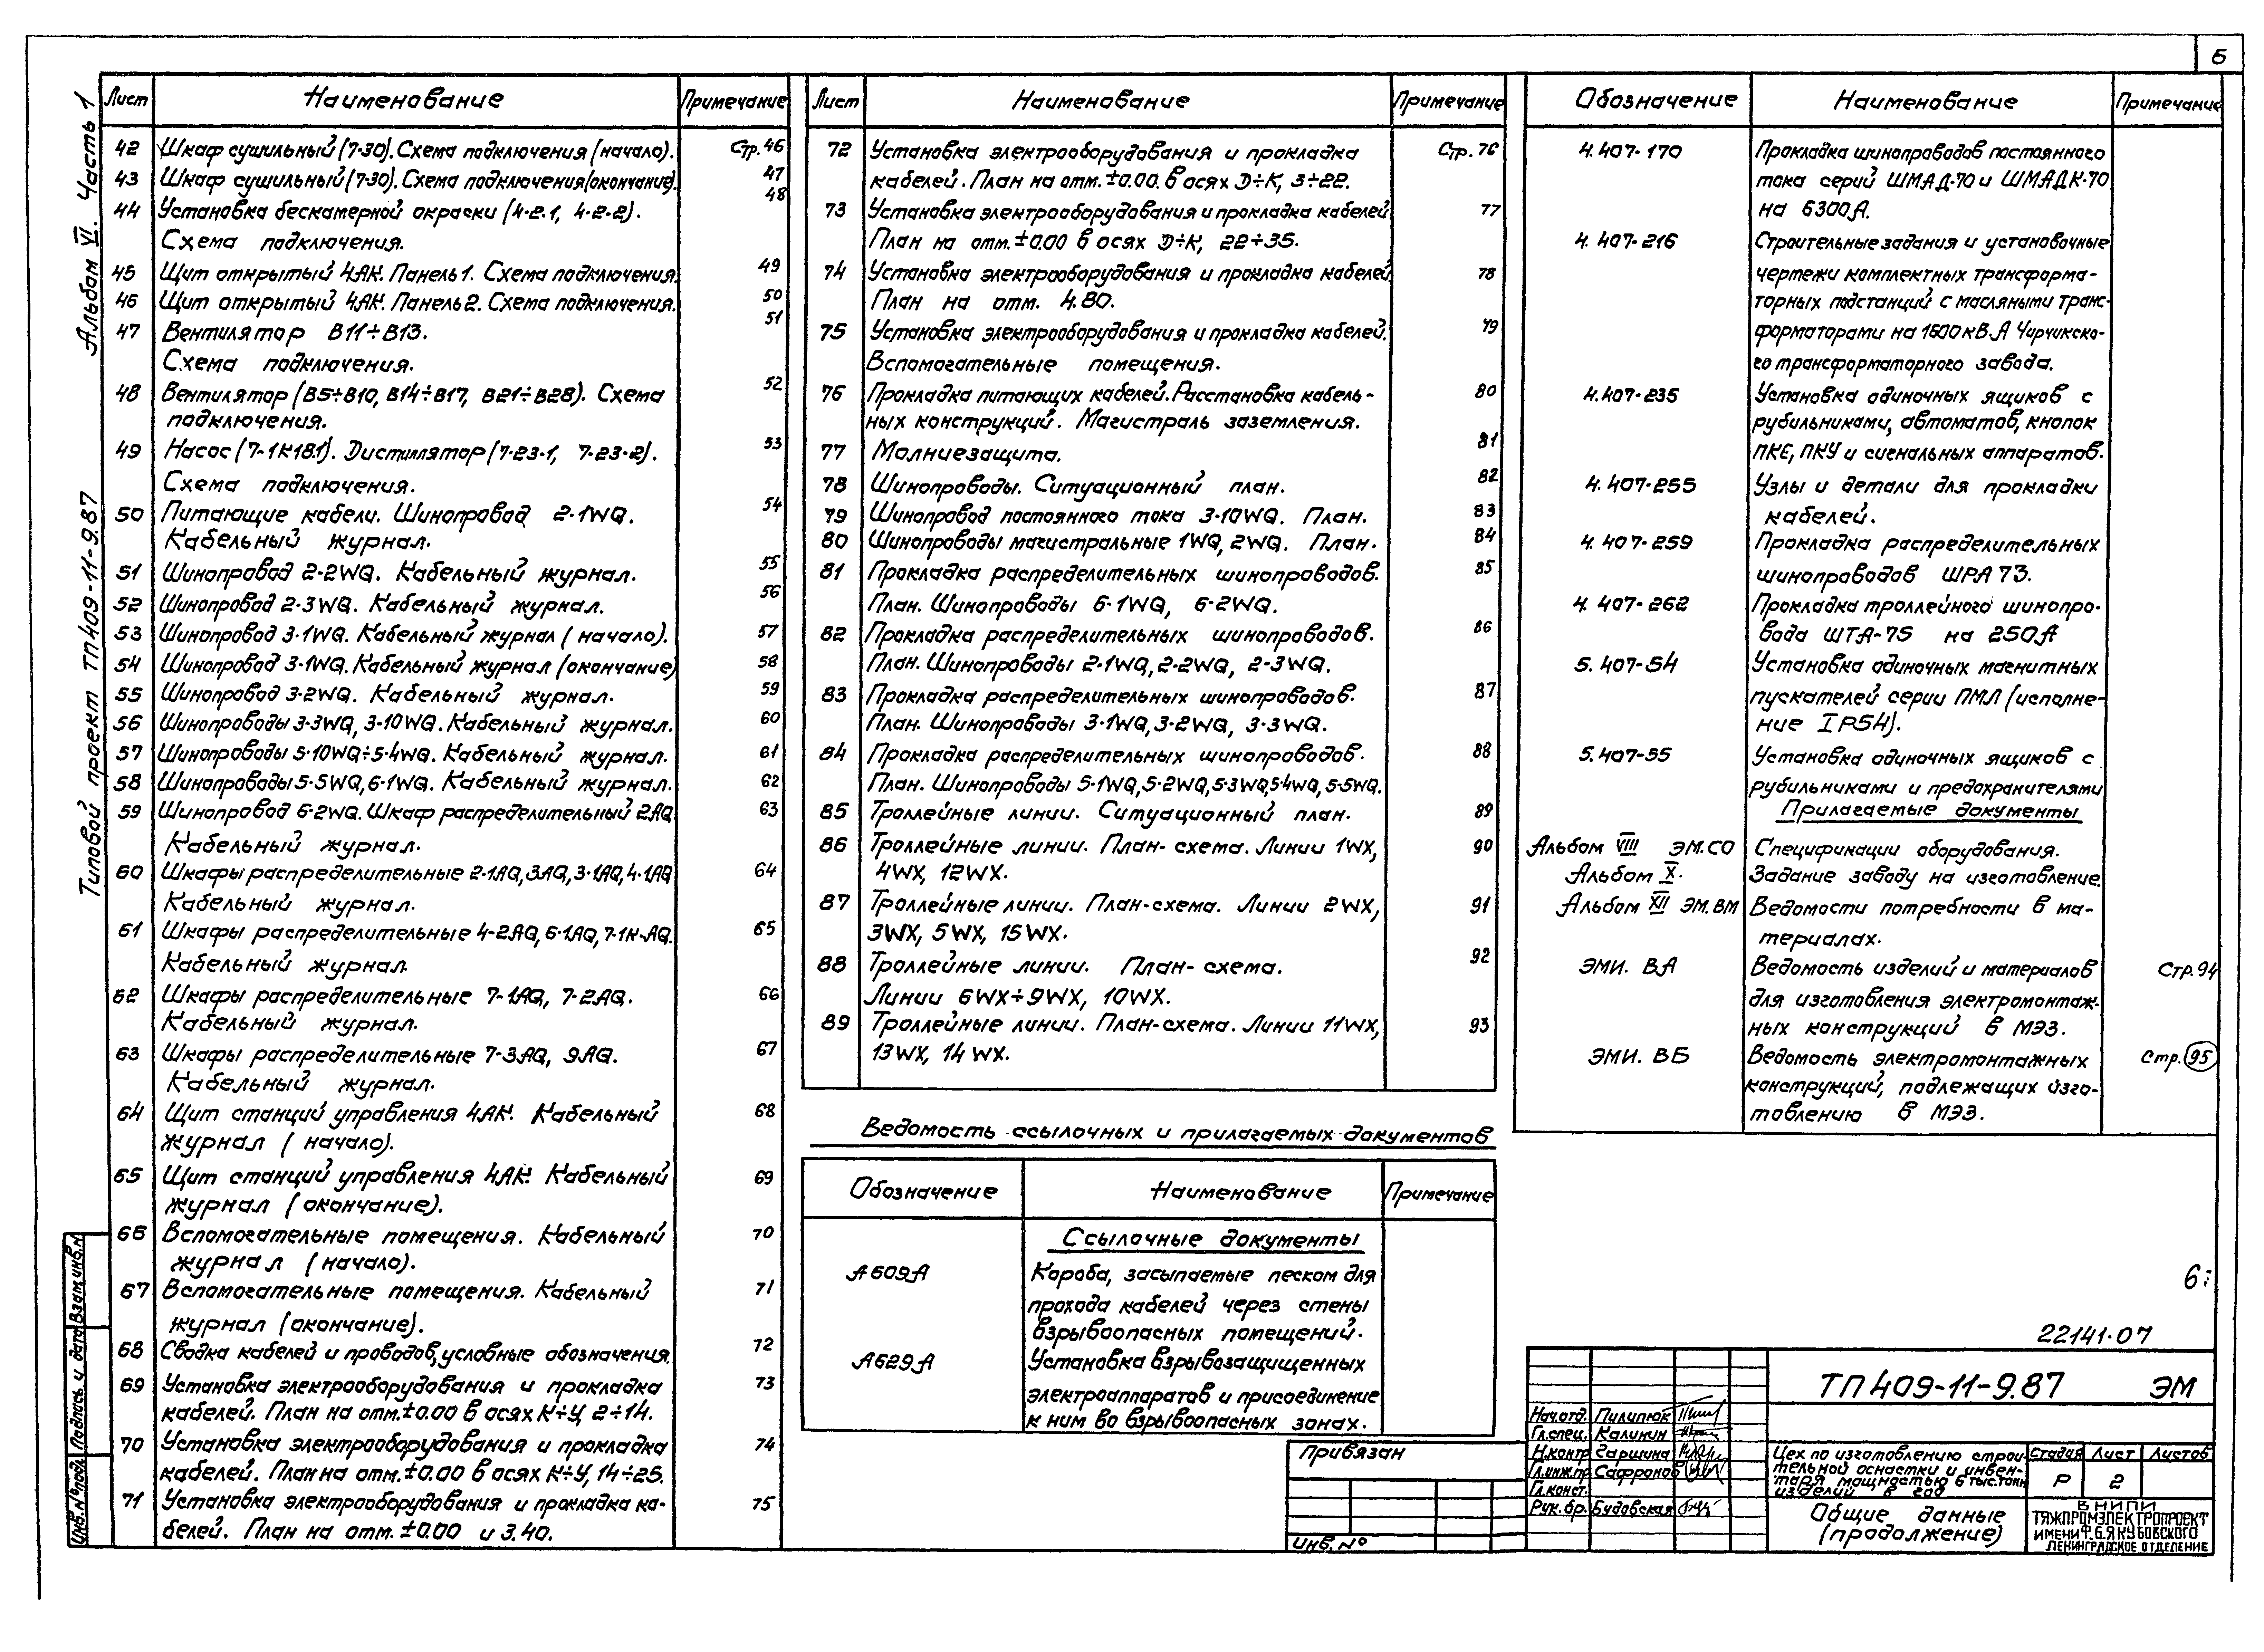 6
Альбом VI. Часть 1
Типовой проект ТП409-11-9.87
Лист Наименование Примечание
42 Шкаф сушильный (7-30). Схема подключения (начало). Стр. 46
43 Шкаф сушильный (7-30). Схема подключения (окончание). 47
44 Установка бескамерной окраски (4-2.1, 4-2-2). 48
Схема подключения.
45 Щит открытый 4АК. Панель 1. Схема подключения. 49
46 Щит открытый 4АК. Панель 2. Схема подключения. 50
47 Вентилятор В11÷В13. 51
Схема подключения.
48 Вентилятор (В5÷В10, В14÷В17, В21÷В28). Схема 52
подключения.
49 Насос (7-1К18.1). Дистиллятор (7-23-1, 7-23-2). 53
Схема подключения.
50 Питающие кабели. Шинопровод 2-1WQ. 54
Кабельный журнал.
51 Шинопровод 2-2WQ. Кабельный журнал. 55
52 Шинопровод 2-3WQ. Кабельный журнал. 56
53 Шинопровод 3-1WQ. Кабельный журнал (начало). 57
54 Шинопровод 3-1WQ. Кабельный журнал (окончание) 58
55 Шинопровод 3-2WQ. Кабельный журнал. 59
56 Шинопроводы 3-3WQ, 3-10WQ. Кабельный журнал. 60
57 Шинопроводы 5-10WQ÷5-4WQ. Кабельный журнал. 61
58 Шинопроводы 5-5WQ, 6-1WQ. Кабельный журнал. 62
59 Шинопровод 6-2WQ. Шкаф распределительный 2AQ 63
Кабельный журнал.
60 Шкафы распределительные 2-1AQ, 3AQ, 3-1AQ, 4-1AQ 64
Кабельный журнал.
61 Шкафы распределительные 4-2AQ, 6-1AQ, 7-1К-AQ. 65
Кабельный журнал.
62 Шкафы распределительные 7-1AQ, 7-2AQ. 66
Кабельный журнал.
63 Шкафы распределительные 7-3AQ, 9AQ. 67
Кабельный журнал.
64 Щит станций управления 4АК. Кабельный 68
журнал (начало).
65 Щит станций управления 4АК. Кабельный 69
журнал (окончание).
66 Вспомогательные помещения. Кабельный 70
журнал (начало).
67 Вспомогательные помещения. Кабельный 71
журнал (окончание).
68 Сводка кабелей и проводов, условные обозначения. 72
69 Установка электрооборудования и прокладка 73
кабелей. План на отм. ±0.00 в осях К÷У, 2÷14.
70 Установка электрооборудования и прокладка 74
кабелей. План на отм. ±0.00 в осях К÷У, 14÷25.
71 Установка электрооборудования и прокладка ка- 75
белей. План на отм. ±0.00 и 3.40.
Лист Наименование Примечание
72 Установка электрооборудования и прокладка Стр. 76
кабелей. План на отм. ±0.00. в осях Д÷К, 3÷22.
73 Установка электрооборудования и прокладка кабелей 77
План на отм. ±0.00 в осях Д÷К, 22÷35.
74 Установка электрооборудования и прокладка кабелей. 78
План на отм. 4.80.
75 Установка электрооборудования и прокладка кабелей. 79
Вспомогательные помещения.
76 Прокладка питающих кабелей. Расстановка кабель- 80
ных конструкций. Магистраль заземления.
77 Молниезащита. 81
78 Шинопроводы. Ситуационный план. 82
79 Шинопровод постоянного тока 3-10WQ. План. 83
80 Шинопроводы магистральные 1WQ, 2WQ. План. 84
81 Прокладка распределительных шинопроводов. 85
План. Шинопроводы 6-1WQ, 6-2WQ.
82 Прокладка распределительных шинопроводов. 86
План. Шинопроводы 2-1WQ, 2-2WQ, 2-3WQ.
83 Прокладка распределительных шинопроводов. 87
План. Шинопроводы 3-1WQ, 3-2WQ, 3-3WQ.
84 Прокладка распределительных шинопроводов. 88
План. Шинопроводы 5-1WQ, 5-2WQ, 5-3WQ, 5-4WQ, 5-5WQ.
85 Троллейные линии. Ситуационный план. 89
86 Троллейные линии. План-схема. Линии 1WX, 90
4WX, 12WX.
87 Троллейные линии. План-схема. Линии 2WX, 91
3WX, 5WX, 15WX.
88 Троллейные линии. План-схема. 92
Линии 6WX÷9WX, 10WX.
89 Троллейные линии. План-схема. Линии 11WX, 93
13WX, 14WX.
Ведомость ссылочных и прилагаемых документов
Обозначение Наименование Примечание
Ссылочные документы
А609А Короба, засыпаемые песком для
прохода кабелей через стены
взрывоопасных помещений.
А629А Установка взрывозащищенных
электроаппаратов и присоединение
к ним во взрывоопасных зонах.
Обозначение Наименование Примечание
4.407-170 Прокладка шинопроводов постоянного
тока серий ШМАД-70 и ШМАДК-70
на 6300А.
4.407-216 Строительные задания и установочные
чертежи комплектных трансформа-
торных подстанций с масляными транс-
форматорами на 1600кВ.А Чирчикско-
го трансформаторного завода.
4.407-235 Установка одиночных ящиков с
рубильниками, автоматов, кнопок
ПКЕ, ПКУ и сигнальных аппаратов.
4.407-255 Узлы и детали для прокладки
кабелей.
4.407-259 Прокладка распределительных
шинопроводов ШРА 73.
4.407-262 Прокладка троллейного шинопро-
вода ШТА-75 на 250А
5.407-54 Установка одиночных магнитных
пускателей серии ПМЛ (исполне-
ние IP54).
5.407-55 Установка одиночных ящиков с
рубильниками и предохранителями
Прилагаемые документы
Альбом VIII ЭМ.СО Спецификации оборудования.
Альбом X. Задание заводу на изготовление.
Альбом XII ЭМ.ВМ Ведомости потребности в ма-
териалах.
ЭМИ. ВА Ведомость изделий и материалов Стр. 94
для изготовления электромонтаж-
ных конструкций в МЭЗ.
ЭМИ. ВБ Ведомость электромонтажных Стр. 95
конструкций, подлежащих изго-
товлению в МЭЗ.
6
22141-07
ТП409-11-9.87 ЭМ
Нач.отд. Пилипюк
Гл.спец. Калинин
Н.контр Гаршина
Гл.инж.пр Сафронов
Гл.конст.
Рук.бр. Будовская
Цех по изготовлению строи-
тельной оснастки и инвен-
таря мощностью 6 тыс.тонн
изделий в год
Стадия Лист Листов
Р 2
Общие данные
(продолжение)
ВНИПИ
ТЯЖПРОМЭЛЕКТРОПРОЕКТ
ИМЕНИ Ф.Б.ЯКУБОВСКОГО
ЛЕНИНГРАДСКОЕ ОТДЕЛЕНИЕ
Привязан
Инв. №
Инв.№ подл. Подпись и дата Взам.инв.№